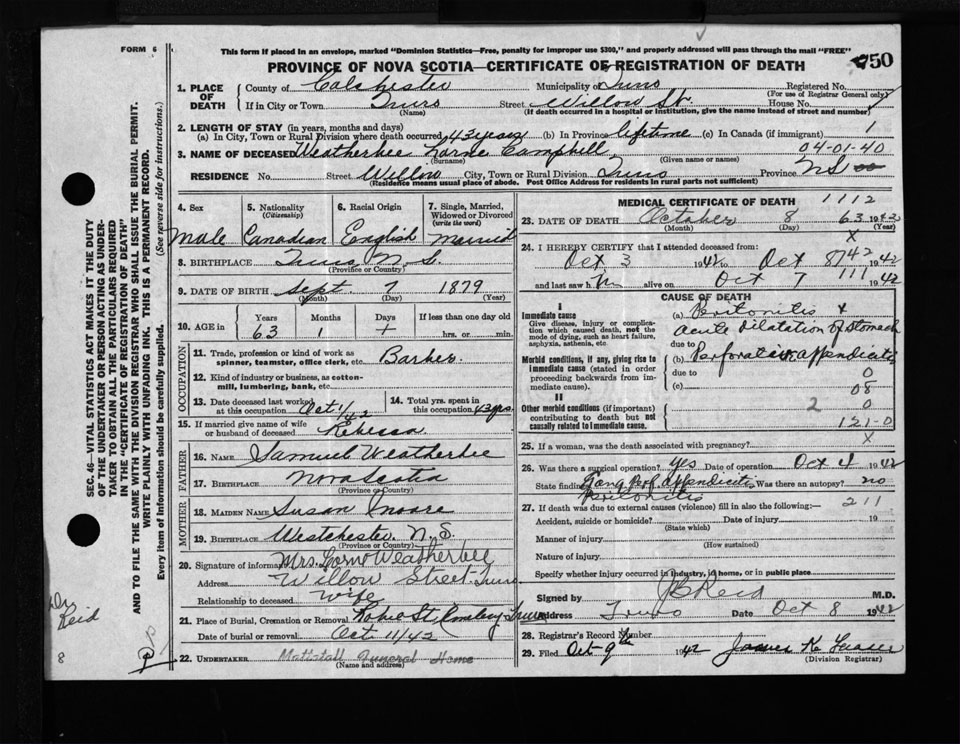 FORM 6
This form if placed in an envelope, marked "Dominion Statistics—Free, penalty for improper use $300," and properly addressed will pass through the mail "FREE"
PROVINCE OF NOVA SCOTIA—CERTIFICATE OF REGISTRATION OF DEATH
750
1. PLACE OF DEATH
County of Colchester Municipality of Truro Registered No.
(For use of Registrar General only)
If in City or Town Truro Street Willow St. House No.
(Name) (If death occurred in a hospital or institution, give the name instead of street and number)
2. LENGTH OF STAY (in years, months and days)
(a) In City, Town or Rural Division where death occurred 43 years (b) In Province lifetime (c) In Canada (if immigrant) 1
3. NAME OF DECEASED Weatherbee Lorne Campbell 04-01-40
(Surname) (Given name or names)
RESIDENCE No. Street Willow City, Town or Rural Division Truro Province NS
(Residence means usual place of abode. Post Office Address for residents in rural parts not sufficient)
4. Sex
Male
5. Nationality (Citizenship)
Canadian
6. Racial Origin
English
7. Single, Married, Widowed or Divorced (write the word)
Married
8. BIRTHPLACE Truro N.S.
(Province or Country)
9. DATE OF BIRTH Sept. 7 1879
(Month) (Day) (Year)
10. AGE in Years Months Days If less than one day old
63 1 + hrs. or min.
OCCUPATION
11. Trade, profession or kind of work as spinner, teamster, office clerk, etc. Barber.
12. Kind of industry or business, as cotton-mill, lumbering, bank, etc.
13. Date deceased last worked at this occupation Oct 1/42
14. Total yrs. spent in this occupation 43 yrs.
15. If married give name of wife or husband of deceased Rebecca.
FATHER
16. NAME Samuel Weatherbee
17. BIRTHPLACE Nova Scotia
(Province or Country)
MOTHER
18. MAIDEN NAME Susan Moore
19. BIRTHPLACE Westchester N.S.
(Province or Country)
20. Signature of informant Mrs. Lorne Weatherbee
Address Willow Street Truro
Relationship to deceased Wife
21. Place of Burial, Cremation or Removal Robie St. Truro
Date of burial or removal Oct. 11/42
22. UNDERTAKER Mattatall Funeral Home
(Name and address)
MEDICAL CERTIFICATE OF DEATH 1112
23. DATE OF DEATH October 8 63 1942
(Month) (Day) (Year)
X
24. I HEREBY CERTIFY that I attended deceased from:
Oct 3 1942 to Oct 8 1942
and last saw him alive on Oct 7 111 1942
CAUSE OF DEATH
I
Immediate cause
Give disease, injury or complication which caused death, not the mode of dying, such as heart failure, asphyxia, asthenia, etc.
(a) Peritonitis +
Acute Dilatation of Stomach
due to
Morbid conditions, if any, giving rise to immediate cause (stated in order proceeding backwards from immediate cause).
(b) Perforative appendicitis
due to 0
(c) 08
II
Other morbid conditions (if important) contributing to death but not causally related to immediate cause.
2 0
121-0
25. If a woman, was the death associated with pregnancy? X
26. Was there a surgical operation? yes Date of operation Oct 4 1942
State findings Gang perf appendicitis Was there an autopsy? no
Peritonitis
27. If death was due to external causes (violence) fill in also the following:— 211
Accident, suicide or homicide? Date of injury 19
(State which)
Manner of injury
(How sustained)
Nature of injury
Specify whether injury occurred in industry, in home, or in public place
Signed by J B Reid M.D.
Address Truro Date Oct 8 1942
28. Registrar's Record Number
29. Filed Oct 9th 1942 James K.
(Division Registrar)
SEC. 46—VITAL STATISTICS ACT MAKES IT THE DUTY
OF THE UNDERTAKER OR PERSON ACTING AS UNDER-
TAKER TO OBTAIN ALL THE PARTICULARS REQUIRED
IN THE "CERTIFICATE OF REGISTRATION OF DEATH"
AND TO FILE THE SAME WITH THE DIVISION REGISTRAR WHO SHALL ISSUE THE BURIAL PERMIT.
WRITE PLAINLY WITH UNFADING INK. THIS IS A PERMANENT RECORD.
Every item of information should be carefully supplied. (See reverse side for instructions.)
Dr
Reid
8